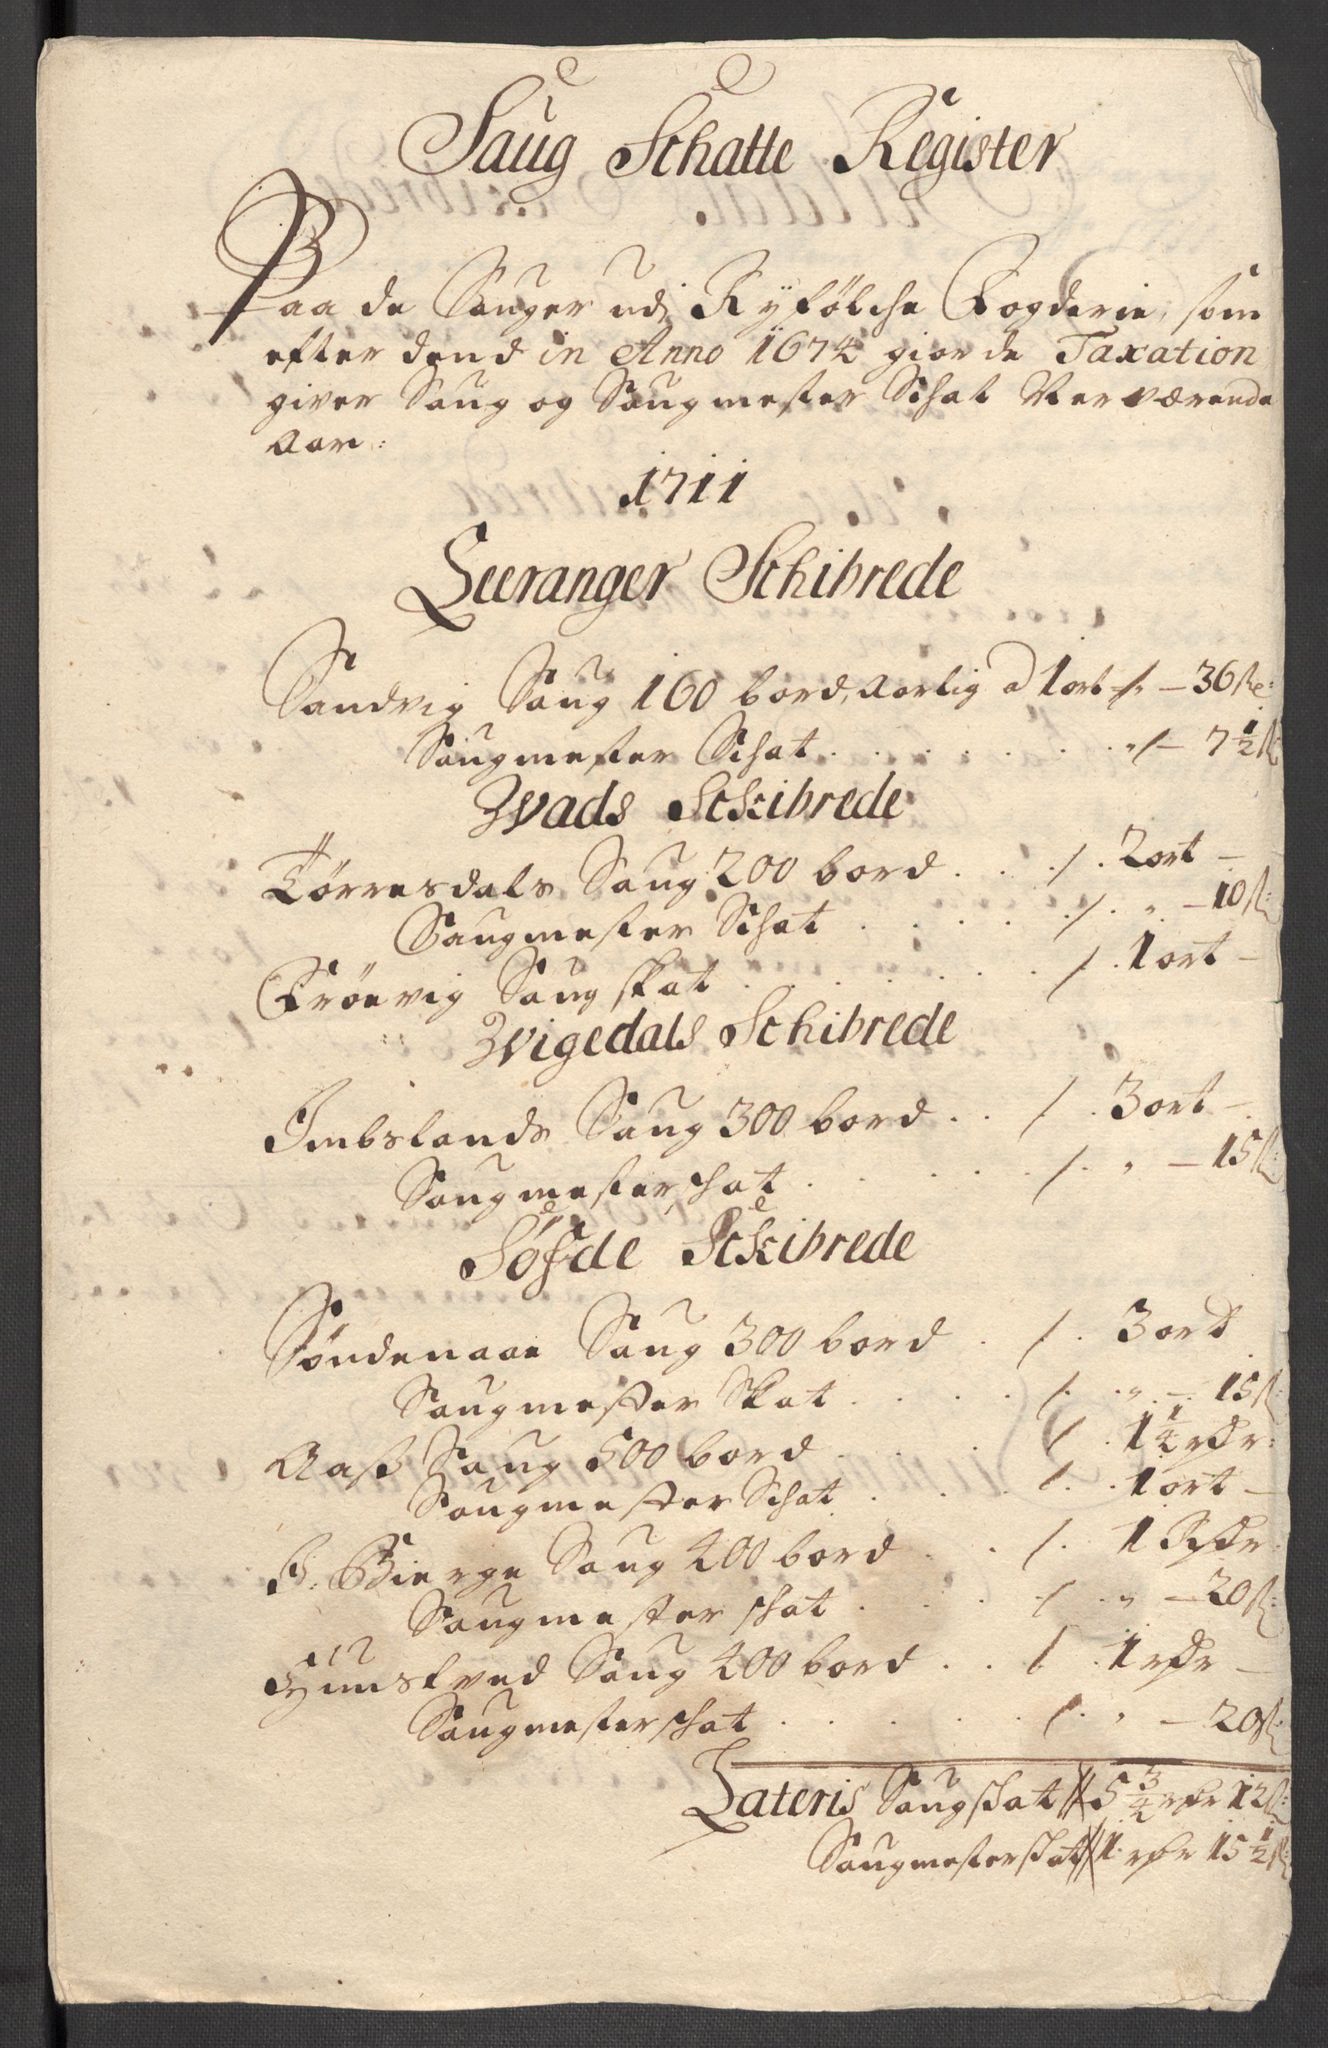 Saug Schatte Register
Paa de Sauger udj Ryfölche Fogderie, som
efter dend in Anno 1674 giorde Taxation
giver Saug og Saugmester Schat Nerværende
Aar:
1711
Leeranger Schibrede
Sandvig Saug 160 bord, Aarlig a 1 ort /. — 36 sk:
Saugmester Schat . . . . . . „ /— 7 1/2 s:
Hvads Sckibrede
Törresdals Saug 200 bord . . . /. 2 ort —
Saugmester Schat . . . . . /. „ — 10 s:
Fröevig Saug skat . . . . . . /. 1 ort —
Hvigedals Schibrede
Imbslands Saug 300 bord . . /. 3 ort —
Saugmester schat . . . . . . /. „ — 15 s:
Söfde Sckibrede
Söndenaae Saug 300 bord . /. 3 ort
Saugmester Skat . . . . /. „ — 15 s:
Aass Saug 500 bord . . . . /. 1 1/4 rdr:
Saugmester Schat . . . . /. 1 ort —
S: Bierge Saug 400 bord . . /. 1 Rdr
Saugmester schat . . . . /. „ — 20 s:
Hünstved Saug 400 bord . . /. 1 rdr —
Saugmester schat . . . . . . /. „ — 20 s:
Lateris Saugschat // 5 3/4 rdr 12 s:
Saugmester schat // 1: rdr 15 1/2 s: